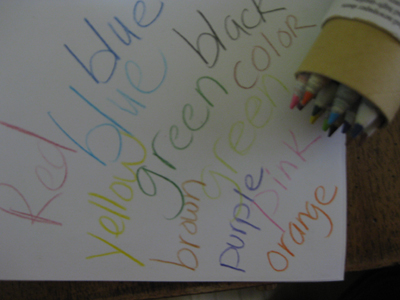 Red
blue
blue
black
color
yellow
green
green
brown
purple
pink
orange